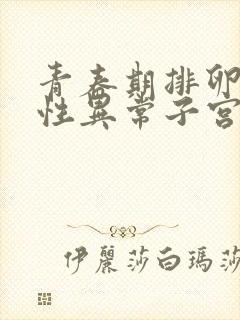 青春期排卵
性異常子宮
伊麗莎白瑪莎